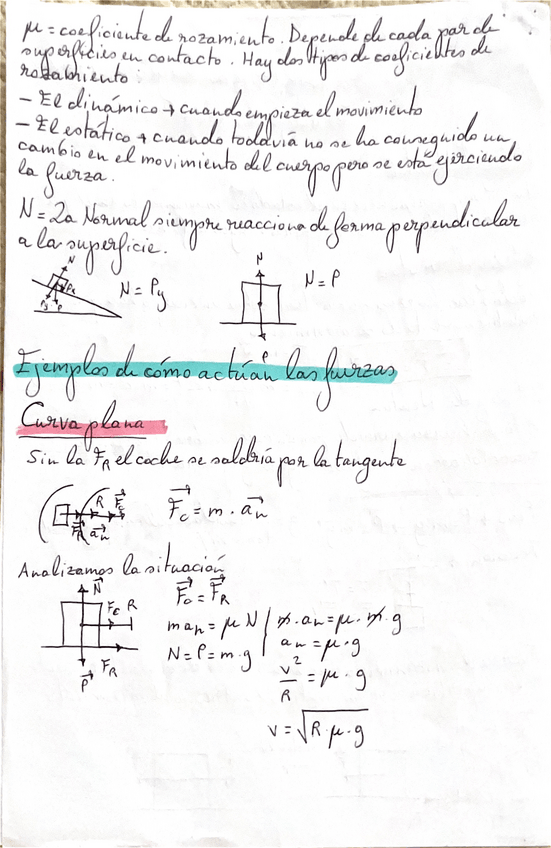 μ = coeficiente de rozamiento. Depende de cada par de
superficies en contacto. Hay dos tipos de coeficientes de
rozamiento:
- El dinámico → cuando empieza el movimiento
- El estático → cuando todavía no se ha conseguido un
cambio en el movimiento del cuerpo pero se está ejerciendo
la fuerza.
N = La Normal siempre reacciona de forma perpendicular
a la superficie.
N
Px
Py P
N = Py
N
P
N = P
Ejemplos de cómo actúan las fuerzas
Curva plana
Sin la F_R el coche se saldría por la tangente
R F_c
F_R a_n
F_c = m · a_n
Analizamos la situación
N
F_c R
F_R
P
F_c = F_R
m a_n = μ N
N = P = m · g
m · a_n = μ · m · g
a_n = μ · g
v²/R = μ · g
v = √(R · μ · g)